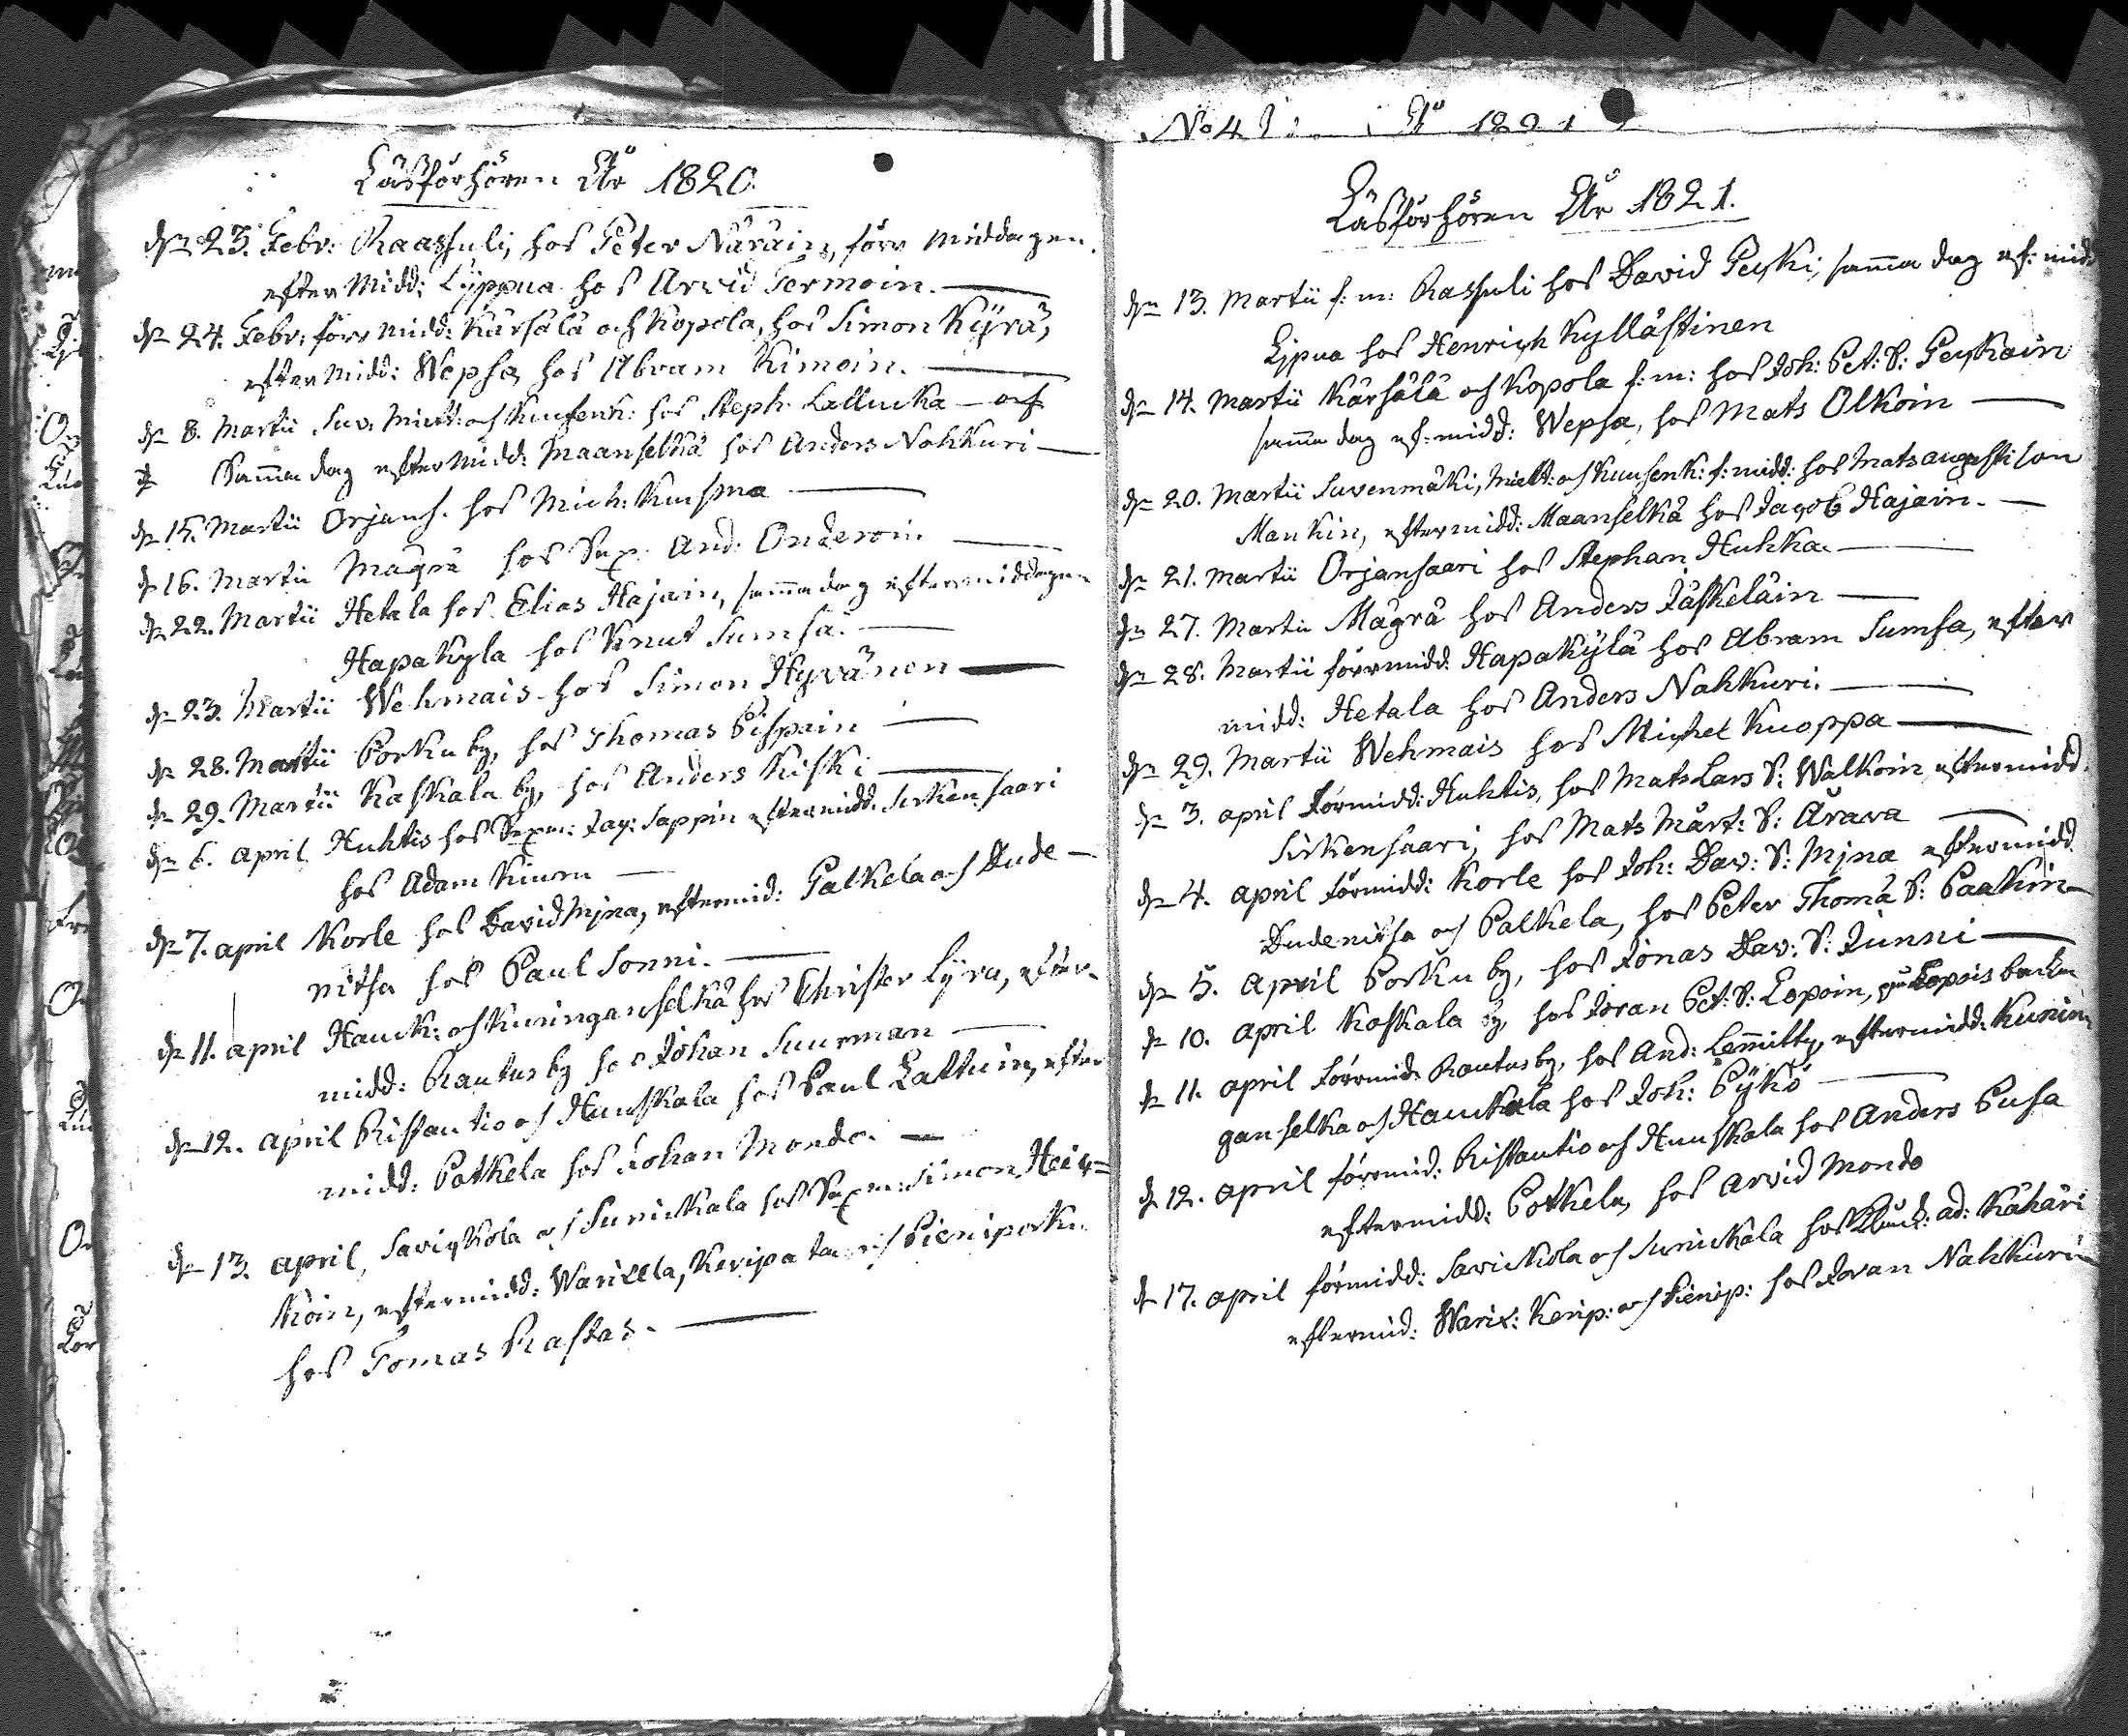 Läsförhören År 1820.
d. 23. Febr: Raassuli, hos Peter Näräin, förr middagen.
efter Midd: Lyppua hos Arvid Termoin.
d. 24. Febr: förr midd: Kärsälä och Kopola, hos Simon Kÿrä,
efter midd: Wepsa hos Abram Kimoin.
d. 8. Martii Suv. Miett: och Kuusenk: hos Steph. Lallucka och
Samma dag efter midd: Maanselkä hos Anders Nohkuri
d. 15. Martii Orjans. hos Mich: Kuisma
d. 16. Martii Mägrä hos Sex. And: Onderoin.
d. 22. Martii Hetala hos Elias Hajain, samma dag eftermiddagen
Hapakyla hos Knut Sumsa.
d. 23. Martii Wehmais hos Simon Hyvänen
d. 28. Martii Porku by, hos Thomas Pispain
d. 29. Martii Kaskala by, hos Anders Kiski
d. 6. april Huhtis hos Sexm: Jac: Sappin eftermidd. Sirkensaari
hos Adam Kiuru
d. 7. april Korle hos David Mjna, eftermid: Palkela och Dude
nitsa hos Paul Sonni.
d. 11. april Hauck: och Kuninganselkä hos Christer Lyra, efter-
midd: Rautus by hos Johan Suurman
d. 12. april Ristautio och Huuskala hos Paul Lattuin, efter
midd: Potkela hos Johan Mondo.
d. 13. april, Savickola och Sunickala hos Sexm: Simon Heis=
koin, eftermidd: Warixela, Keripata och Pieniporku
hos Tomas Rastas.
No 4 År 1821
Läsförhören År 1821.
d. 13. Martii f: m: Rassuli hos David Peuski, samma dag ef: midd
Ljpua hos Henrich Kyllästinen
d. 14. Martii Kärsälä och Kopola f: m: hos Joh: Pet: S: Peuskain
samma dag ef: midd: Wepsa, hos Mats Olkoin
d. 20. Martii Suvenmäki, Miett: och Kuusenk: f: midd: hos Mats augusti son
Mankin, eftermidd: Maanselkä hos Jacob Hajain.
d. 21. Martii Orjansaari hos Stephan Huhka
d. 27. Martii Mägrä hos Anders Jäskeläin
d. 28. Martii förrmidd. Hapakÿlä hos Abram Sumsa, efter
midd: Hetala hos Anders Nahkuri.
d. 29. Martii Wehmais hos Michel Kuoppa
d. 3. april förmidd: Huhtis, hos Mats Lars S: Walkoin, eftermidd.
Sirkensaari, hos Mats Mårt: S: Ärava
d. 4. april förmidd: Korle hos Joh: Dav: S: Mjna eftermidd.
Dudenitsa och Palkela, hos Peter Thomæ S: Paakin
d. 5. April Porku by, hos Jonas Dav: S: Junni
d. 10. april Koskala by, hos Joran Pet: S: Lopoin, på Lopois backe
d. 11. april förrmid. Rautus by, hos And: Lemitty, eftermidd: Kunin
ganselka och Hauckala hos Joh: Pÿkö
d. 12. april förrmid: Ristautio och Huuskala hos Anders Pusa
eftermidd: Potkela, hos Arvid Mondo
d. 17. april förmidd: Savickola och Sunickala hos ad: Kähäri
eftermid: Warix: Kerip: och Pienip: hos Joran Nahkuri